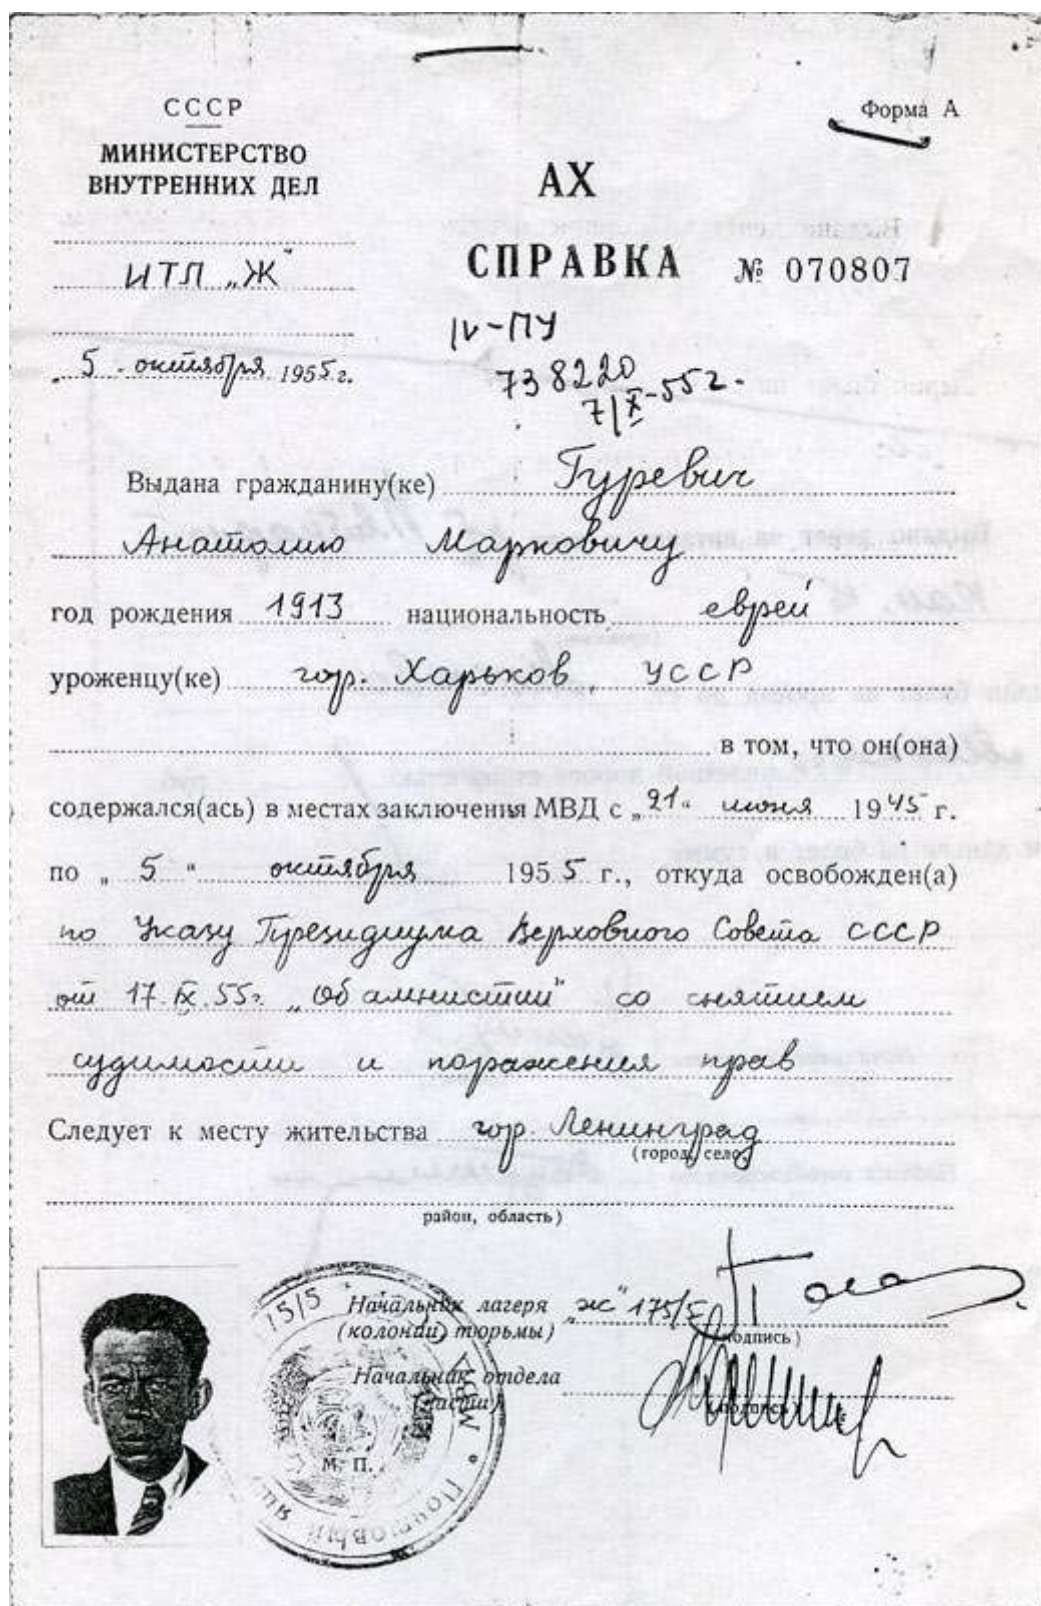 СССР
Форма А
МИНИСТЕРСТВО
ВНУТРЕННИХ ДЕЛ
АХ
ИТЛ „Ж"
СПРАВКА № 070807
IV-ПУ
„5 - октября 1955 г.
738220
7/X-55 г.
Выдана гражданину(ке) Гуревич
Анатолию Марковичу
год рождения 1913 национальность еврей
уроженцу(ке) гор. Харьков, УССР
в том, что он(она)
содержался(ась) в местах заключения МВД с „21" июня 1945 г.
по „5" октября 1955 г., откуда освобожден(а)
по Указу Президиума Верховного Совета СССР
от 17.IX.55г. „Об амнистии" со снятием
судимости и поражения прав
Следует к месту жительства гор. Ленинград
(город, село,
район, область)
Начальник лагеря „Ж" 175/
(колонии) тюрьмы)
(подпись)
Начальник отдела
(части)
(подпись)
М. П.
15/5
Почтовый ящик